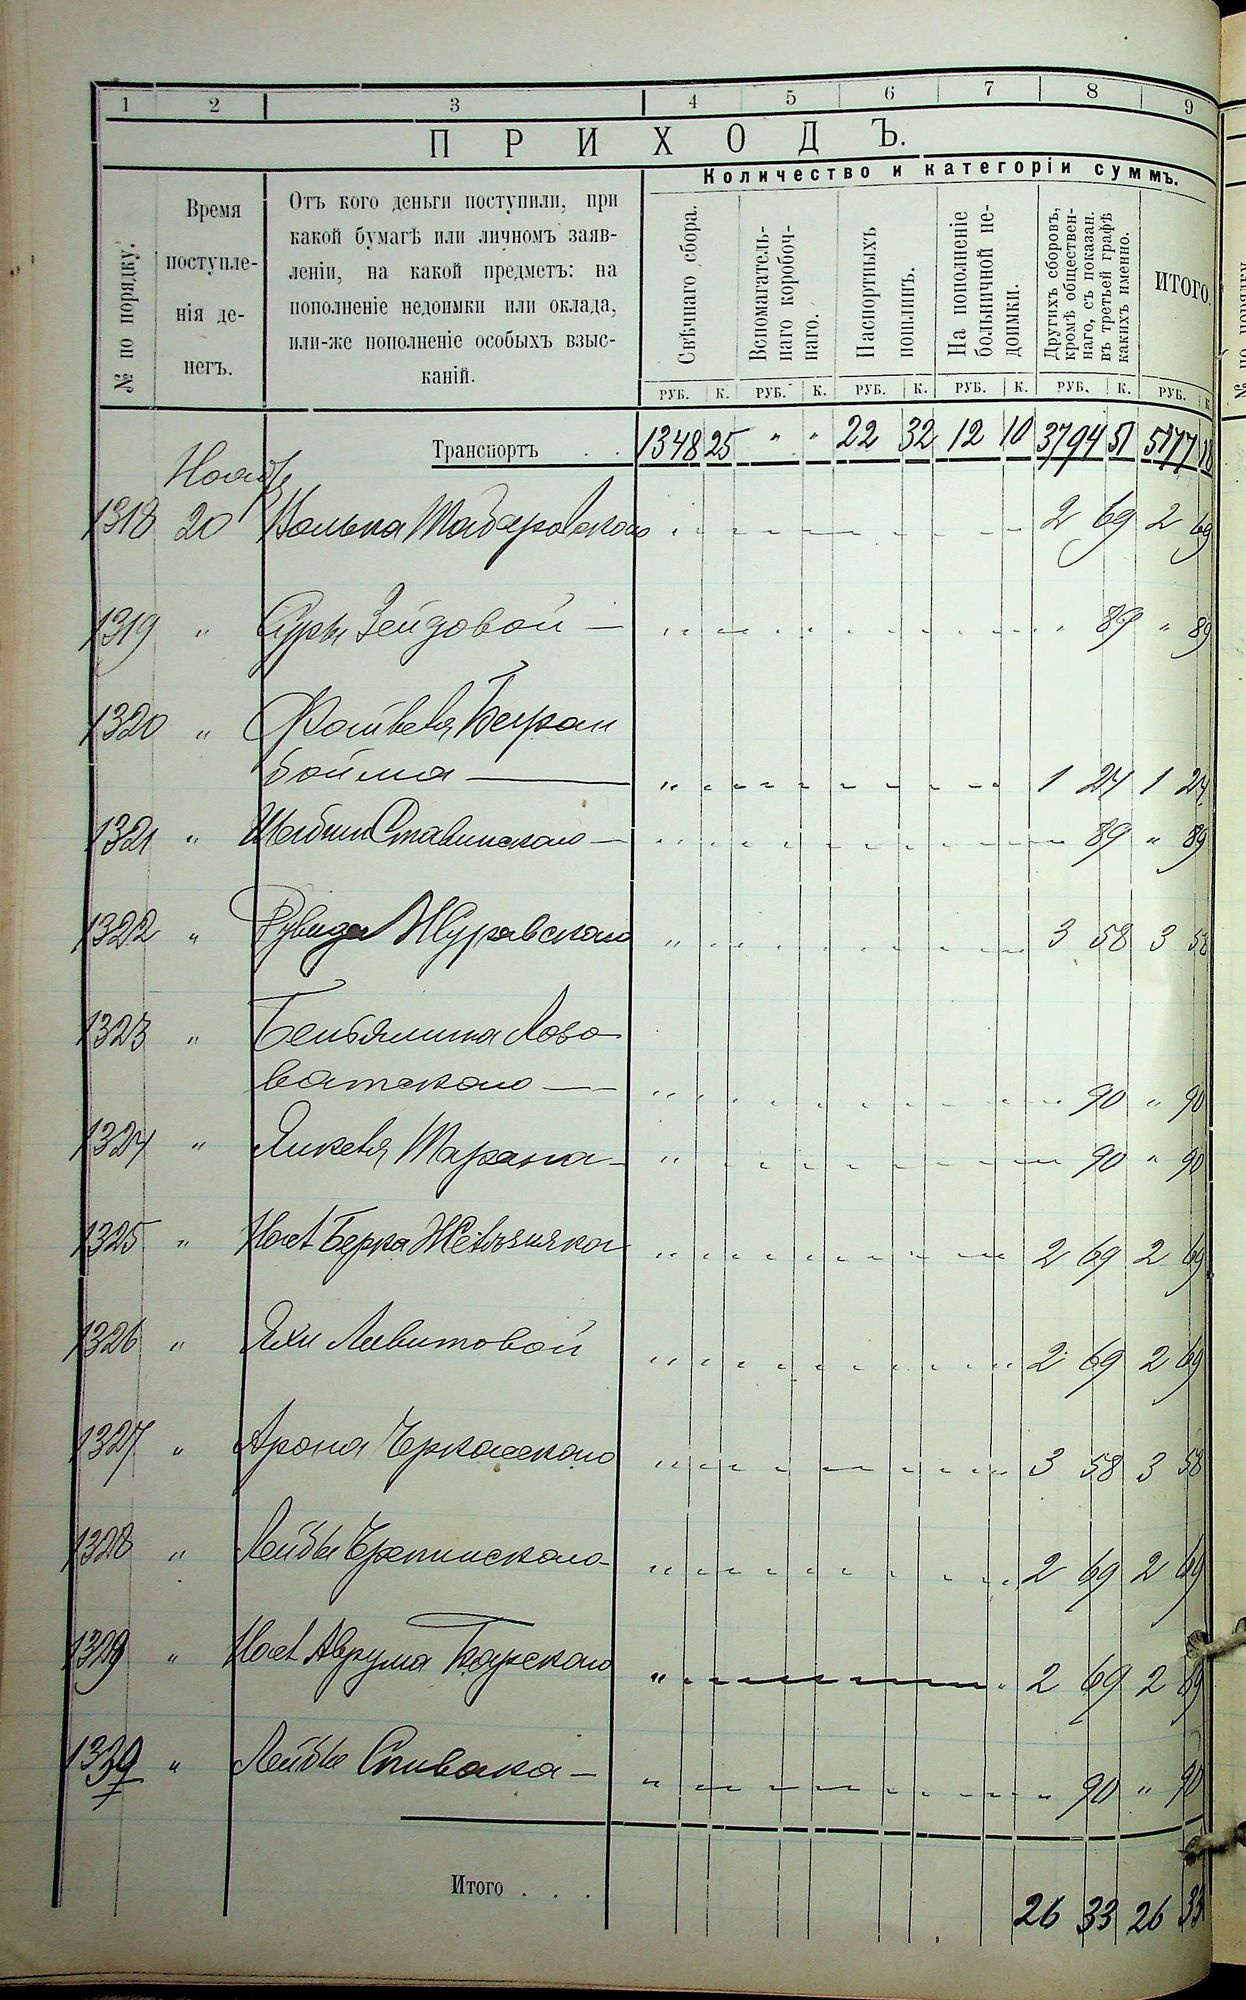 1 2 3 4 5 6 7 8 9
ПРИХОДЪ.
Количество и категоріи суммъ.
№ по порядку.
Время
поступле-
нія де-
негъ.
Отъ кого деньги поступили, при
какой бумагѣ или личномъ заяв-
леніи, на какой предметъ: на
пополненіе недоимки или оклада,
или-же пополненіе особыхъ взыс-
каній.
Свѣчнаго сбора.
Вспомагатель-
наго коробоч-
наго.
Паспортныхъ
пошлинъ.
На пополненіе
больничной не-
доимки.
Другихъ сборовъ,
кромѣ обществен-
наго, съ показан.
въ третьей графѣ
какихъ именно.
ИТОГО.
РУБ. К. РУБ. К. РУБ. К. РУБ. К. РУБ. К. РУБ. К.
Транспортъ . . 1348 25 " " 22 32 12 10 3794 51 5177 18
Ноября
1318 20 Волька 2 69 2 69
1319 " Суры Зейдовой — " 89 " 89
1320 " Файвеля Беиран
боима — 1 24 1 24
1321 " Ставинскаго — 89 " 89
1322 " Рувида Журавскаго 3 58 3 58
1323 " Беньямина Лозо
ватскаго — 90 " 90
1324 " Янкеля Тарана — 90 " 90
1325 " Насл Берка Желѣзняка 2 69 2 69
1326 " Яхи Левитовой 2 69 2 69
1327 " Арона Черкасскаго 3 58 3 58
1328 " Лейбы 2 69 2 69
1329 " Насл Аврума Барскаго 2 69 2 69
1330 " Лейбы Спивака — " 90 " 90
Итого . . . 26 33 26 33